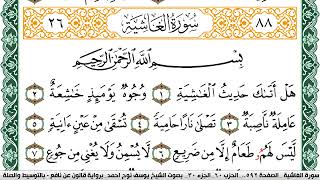 ٨٨ سُورَةُ الْغَاشِيَةِ ٢٦
بِسْمِ اللَّهِ الرَّحْمَٰنِ الرَّحِيمِ
هَلْ أَتَىٰكَ حَدِيثُ الْغَٰشِيَةِ ١ وُجُوهٌ يَوْمَئِذٍ خَٰشِعَةٌ ٢
عَامِلَةٌ نَّاصِبَةٌ ٣ تَصْلَىٰ نَارًا حَامِيَةً ٤ تُسْقَىٰ مِنْ عَيْنٍ ءَانِيَةٍ ٥
لَّيْسَ لَهُمُۥ طَعَامٌ إِلَّا مِن ضَرِيعٍ ٦ لَّا يُسْمِنُ وَلَا يُغْنِي مِن جُوعٍ ٧
سورة الغاشية - الصفحة ٥٩٢ - الحزب ٦٠ - الجزء ٣٠ - بصوت الشيخ يوسف نوح أحمد برواية قالون عن نافع - بالتوسيط والصلة